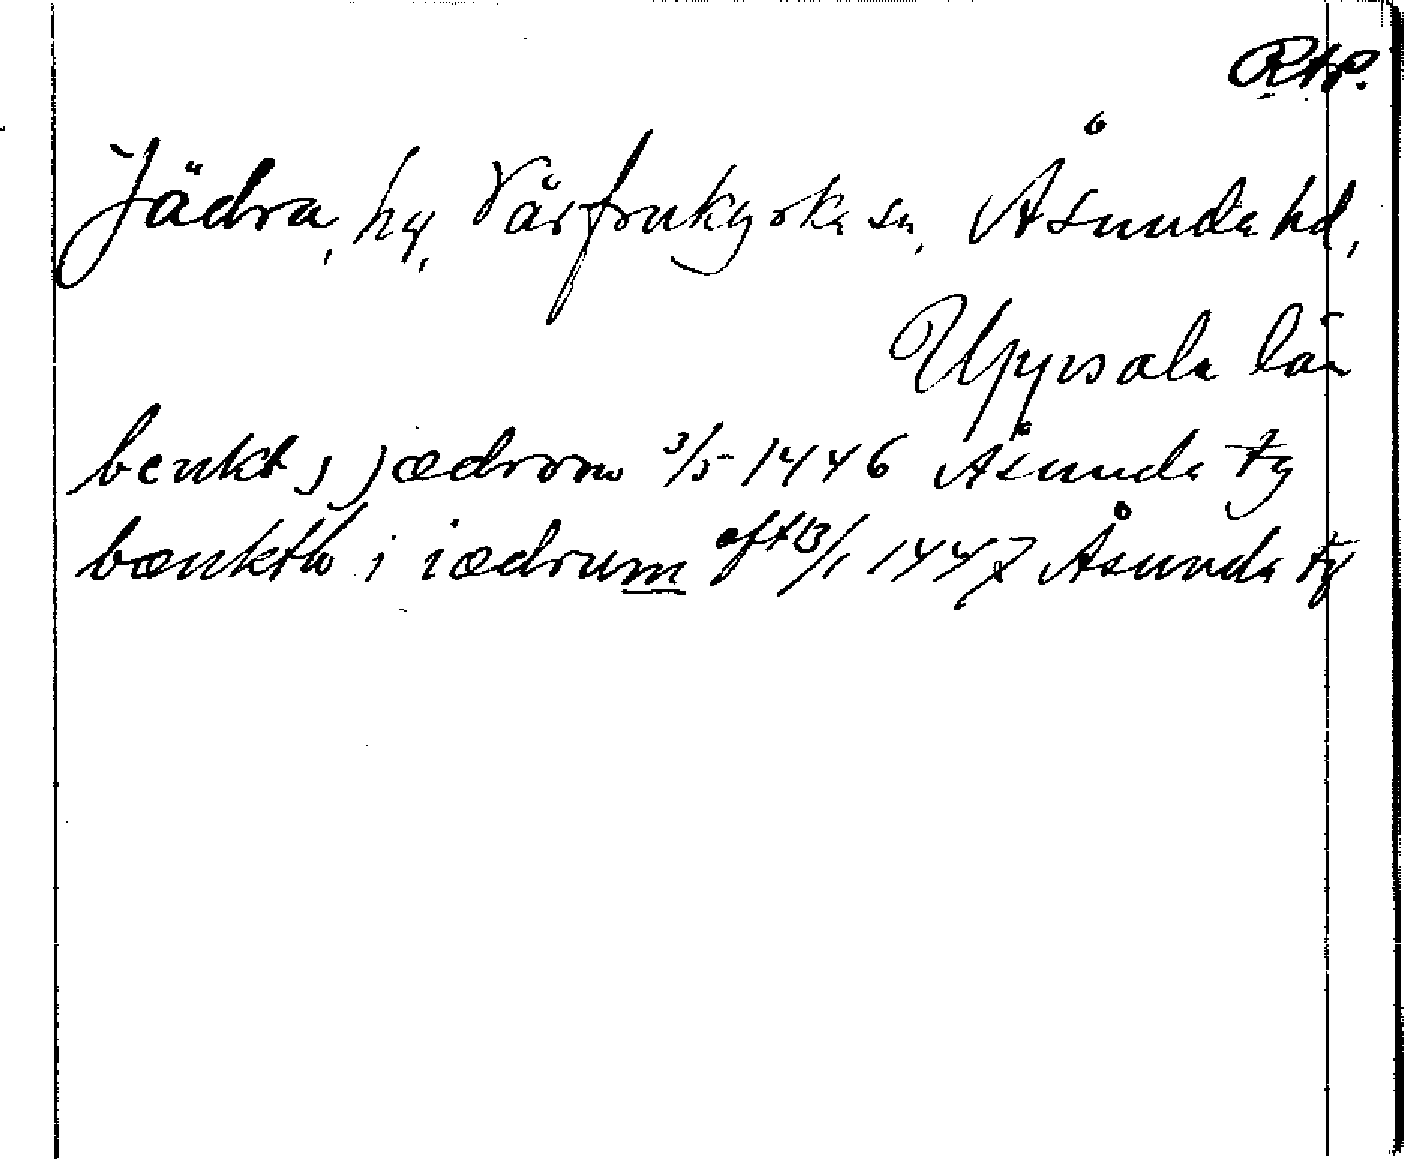 RAp.
Jädra, by, Vårfrukyrka sn, Åsunda hd,
Uppsala län
benkt j jædrom 3/5 1446 Åsunda ty
bænkth i iædrum eft 13/1 1447 Åsunda ty